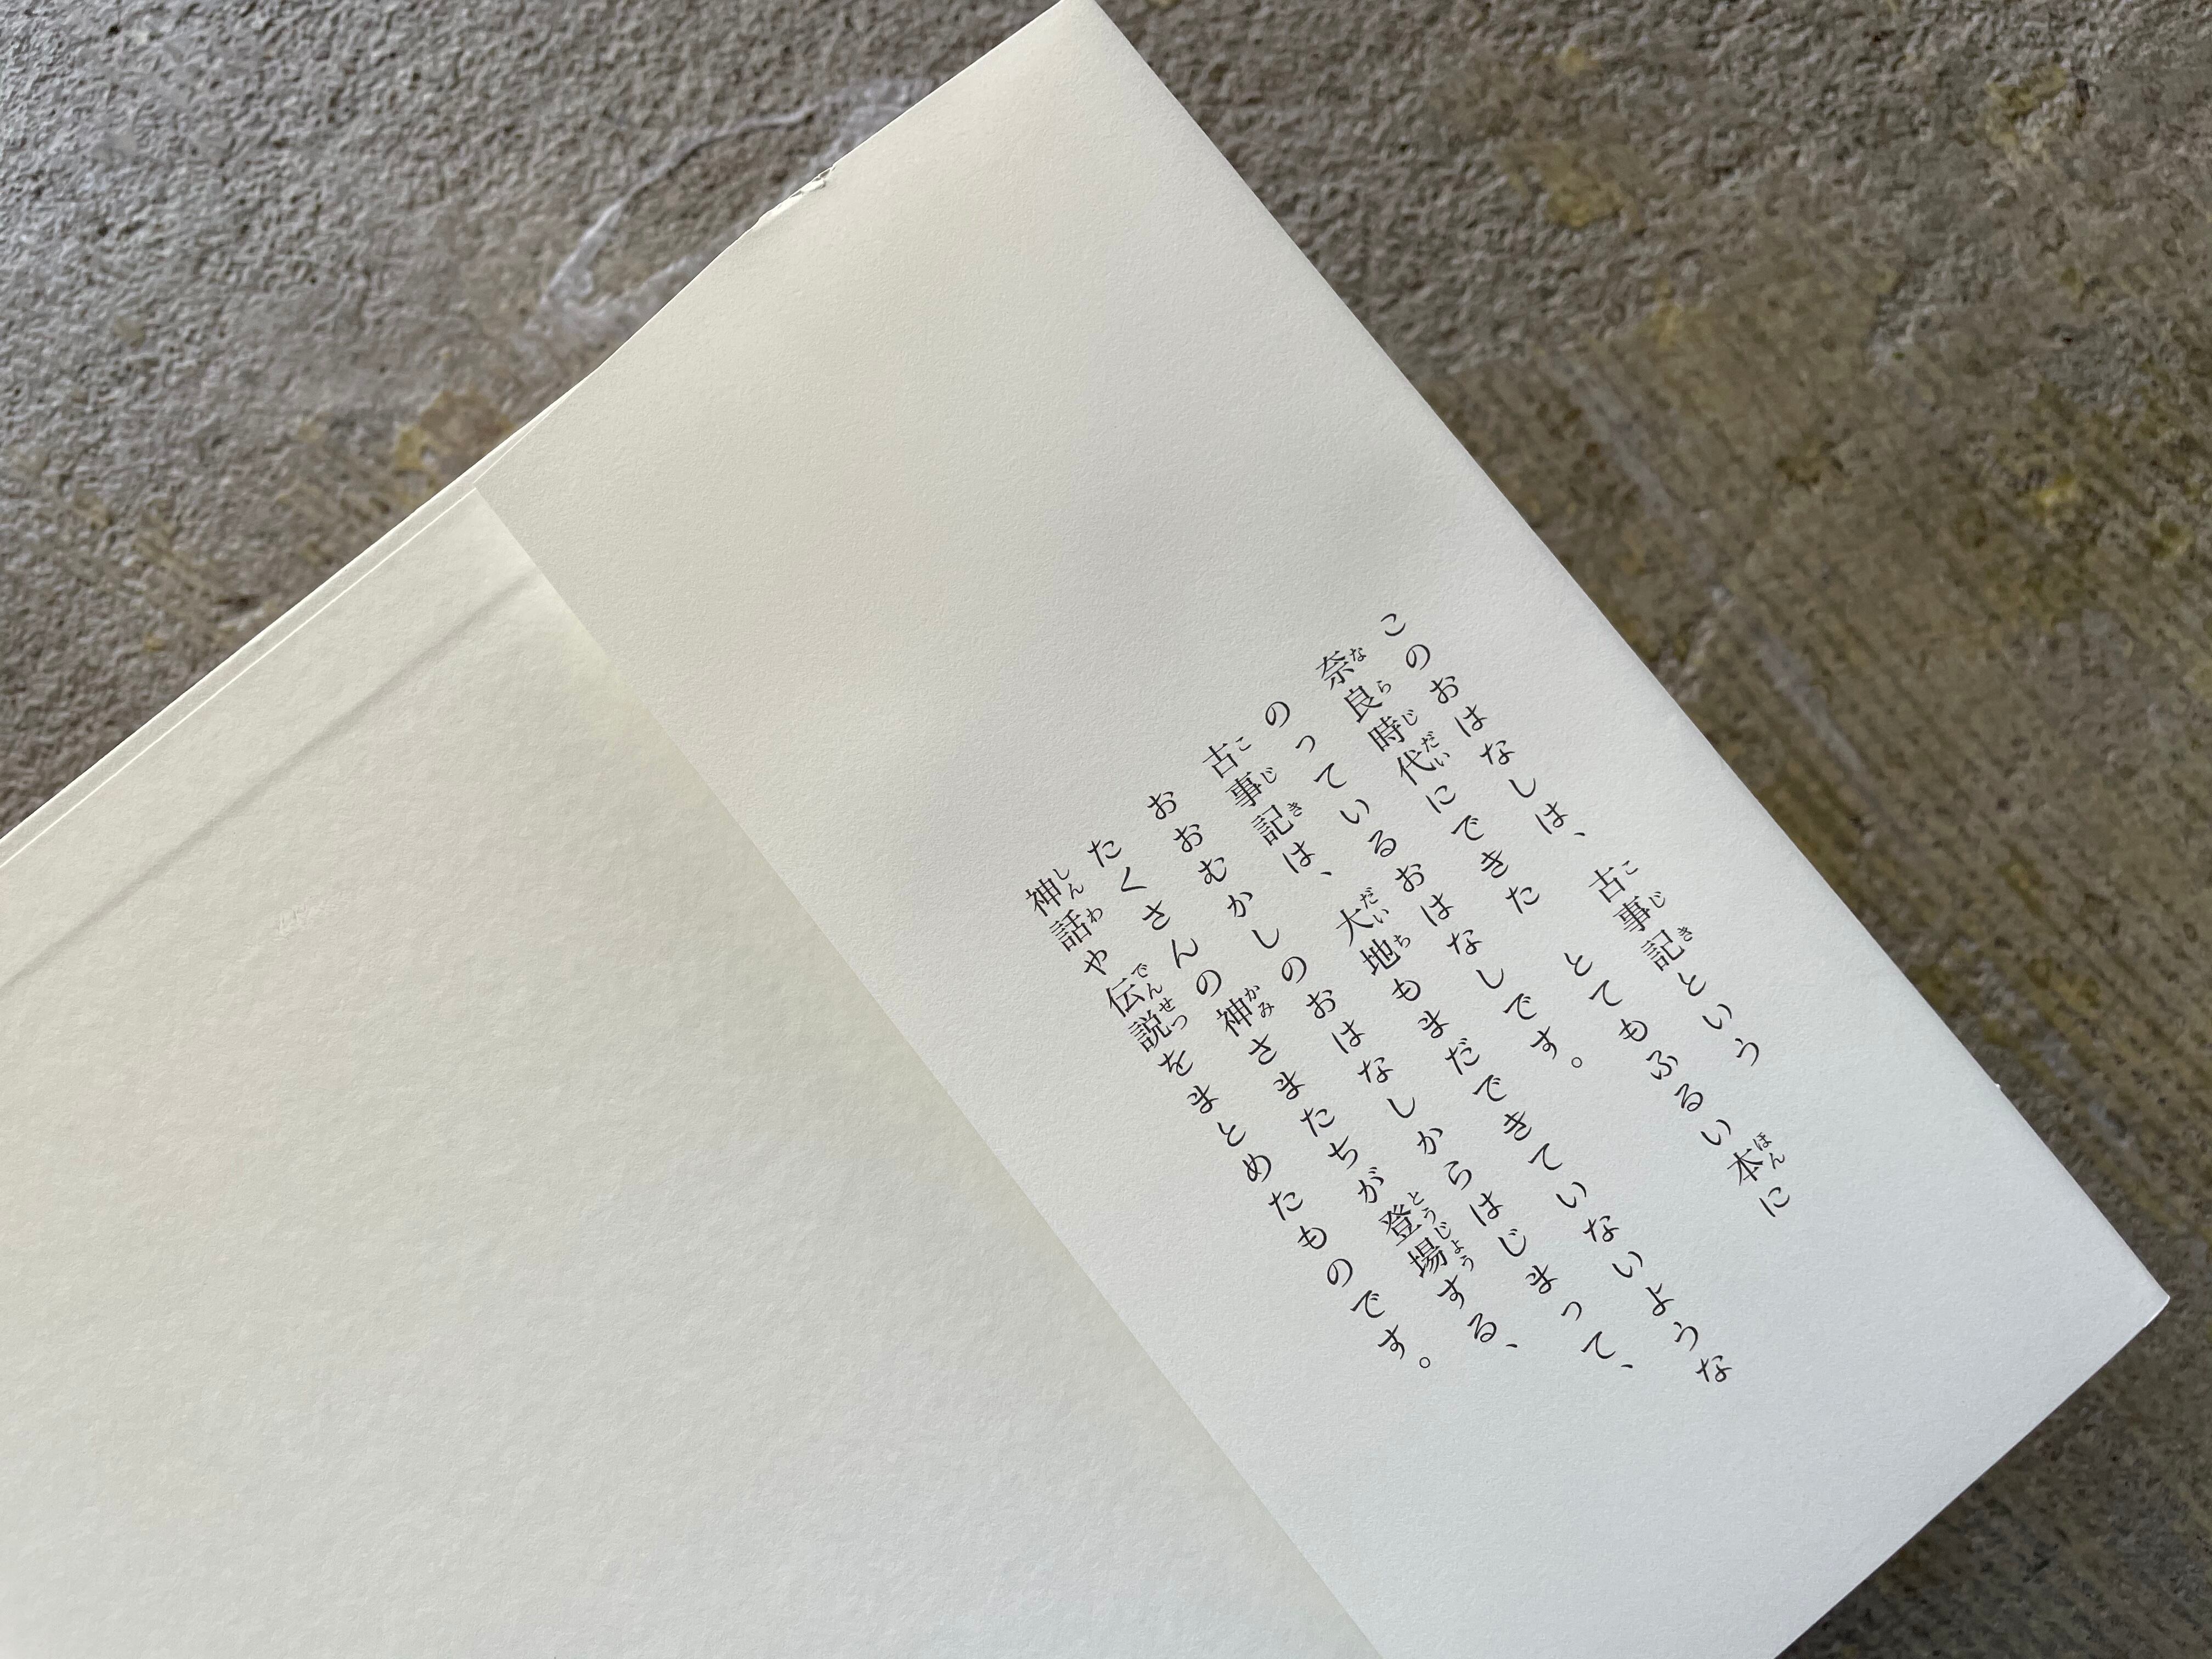 このおはなしは、古事記という
奈良時代にできた とてもふるい本に
のっているおはなしです。
古事記は、大地もまだできていないような
おおむかしのおはなしからはじまって、
たくさんの神さまたちが登場する、
神話や伝説をまとめたものです。